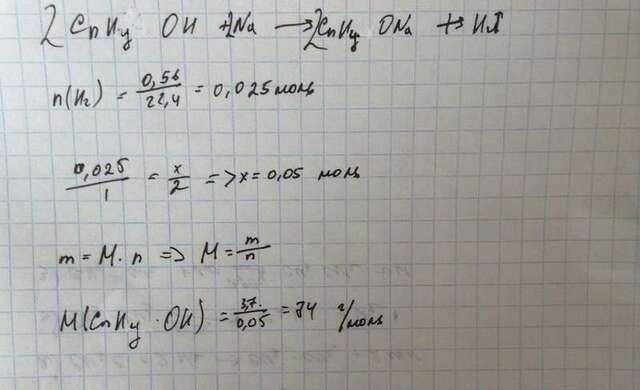 2CnHy OH +2Na → 2CnHy ONa + H2
n(H2) = 0,56/22,4 = 0,025 моль
0,025/1 = x/2 => x = 0,05 моль
m = M · n => M = m/n
M(CnHy · OH) = 3,7/0,05 = 74 г/моль